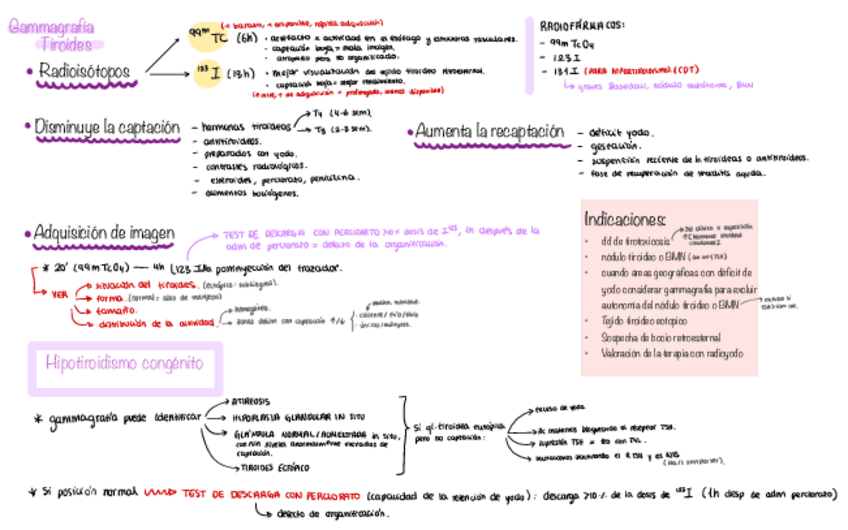 Gammagrafía
Tiroides
• Radioisótopos
(+ barato, + disponible, rápida adquisición)
99m TC (6h)
• artefacto x actividad en el esófago y estructuras vasculares.
• captación baja = mala imagen.
• atrapado pero no organificado.
123 I (13h)
• mejor visualización del tejido tiroideo retroesternal.
• captación baja = mejor rendimiento.
RADIOFÁRMACOS:
- 99m TcO4
- 123 I
- 131 I (PARA HIPERTIROIDISMO/CDT)
graves Basedow, nódulo autónomo, BMN
• Disminuye la captación
- hormonas tiroideas
T4 (4-6 sem).
T3 (2-3 sem).
- antitiroideos.
- preparados con yodo.
- contrastes radiológicos.
- esteroides, perclorato, penicilina.
- alimentos bociógenos.
• Aumenta la recaptación
- déficit yodo.
- gestación.
- suspensión reciente de h. tiroideas o antitiroideos.
- fase de recuperación de tiroiditis aguda.
• Adquisición de imagen
TEST DE DESCARGA CON PERCLORATO >10% dosis de I123, 1h después de la
adm de perclorato = defecto de la organificación.
* 20' (99m TcO4) — 4h (123 I) la postinyección del trazador.
VER
situación del tiroides. (ectópico: sublingual).
forma. (normal = alas de mariposa)
tamaño.
distribución de la actividad.
homogénea.
zonas delim con captación ↑/↓
caliente / frío / tibio
únicos/múltiples.
Indicaciones:
• dd de tirotoxicosis
• nódulo tiroideo o BMN
• cuando áreas geográficas con déficit de
yodo considerar gammagrafía para excluir
autonomía del nódulo tiroideo o BMN
• Tejido tiroideo ectópico
• Sospecha de bocio retroesternal
• Valoración de la terapia con radioyodo
Hipotiroidismo congénito
* gammagrafía puede identificar
ATIREOSIS
HIPOPLASIA GLANDULAR IN SITU
GLÁNDULA NORMAL/AUMENTADA in situ,
con/sin niveles anormalmente elevados de
captación.
TIROIDES ECTÓPICO
Si gl. tiroidea eutópica
pero no captación:
exceso de yodo
Ac maternos bloqueando el receptor TSH.
supresión TSH x tto con
mutaciones inactivando el R TSH y el NIS
* Si posición normal → TEST DE DESCARGA CON PERCLORATO (capacidad de la retención de yodo): descarga >10% de la dosis de 123 I (1h desp de adm perclorato)
defecto de organificación.